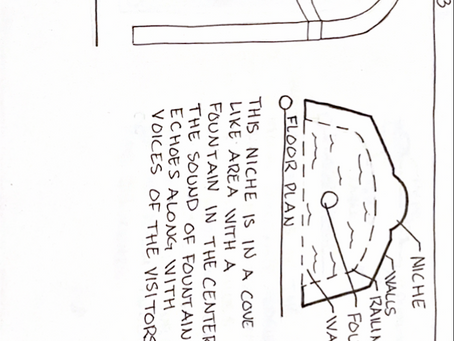 3
NICHE
WALLS
RAILIN
FOU
WA
FLOOR PLAN
THIS NICHE IS IN A COVE
LIKE AREA WITH A
FOUNTAIN IN THE CENTER
THE SOUND OF FOUNTAIN
ECHOES ALONG WITH
VOICES OF THE VISITORS